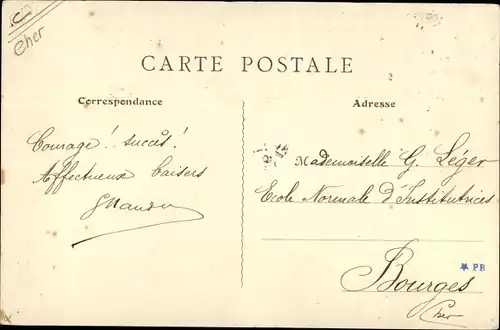 C
Cher
CARTE POSTALE
Correspondance
Adresse
Courage!! succès!
Affectueux baisers
Mademoiselle G. Léger
Ecole Normale d'Institutrices
Bourges
Cher
PB